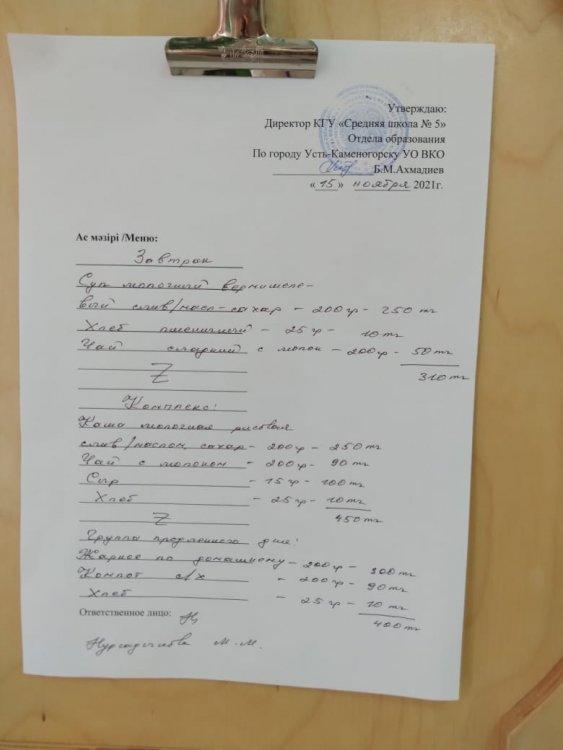 Утверждаю:
Директор КГУ «Средняя школа № 5»
Отдела образования
По городу Усть-Каменогорску УО ВКО
Б.М.Ахмадиев
«15» ноября 2021г.
Ас мәзірі /Меню:
Завтрак
Суп молочный вермишеле-
вый слив/масл-сахар - 200гр - 250 тг
Хлеб пшеничный - 25гр - 10 тг
Чай сладкий с молок - 200гр - 50 тг
310 тг
Z
Комплекс:
Каша молочная рисовая
слив/маслом, сахар - 200гр - 250 тг
Чай с молоком - 200гр - 90 тг
Сыр - 15гр - 100 тг
Хлеб - 25гр - 10 тг
450 тг
Z
Группа продленного дня:
Жаркое по домашнему - 200гр - 300 тг
Компот с/х - 200гр - 90 тг
Хлеб - 25гр - 10 тг
400 тг
Ответственное лицо:
М.М.